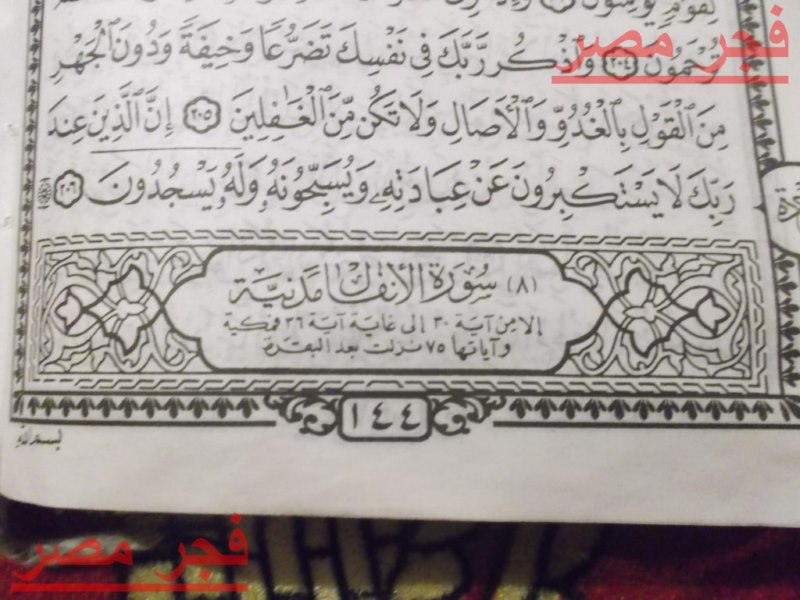 لِقَوْمٍ يُؤْمِنُونَ
فجر مصر
تُرْحَمُونَ ٢٠٤ وَٱذْكُر رَّبَّكَ فِى نَفْسِكَ تَضَرُّعًا وَخِيفَةً وَدُونَ ٱلْجَهْرِ
مِنَ ٱلْقَوْلِ بِٱلْغُدُوِّ وَٱلْأَصَالِ وَلَا تَكُن مِّنَ ٱلْغَٰفِلِينَ ٢٠٥ إِنَّ ٱلَّذِينَ عِندَ
رَبِّكَ لَا يَسْتَكْبِرُونَ عَنْ عِبَادَتِهِۦ وَيُسَبِّحُونَهُۥ وَلَهُۥ يَسْجُدُونَ ۩ ٢٠٦
(٨) سُورَة الأنفا مَدنيَّة
إلا من آية ٣٠ إلى غاية آية ٣٦ فمكية
وآياتها ٧٥ نزلت بعد البقرة
١٤٤
بسم الله
فجر مصر